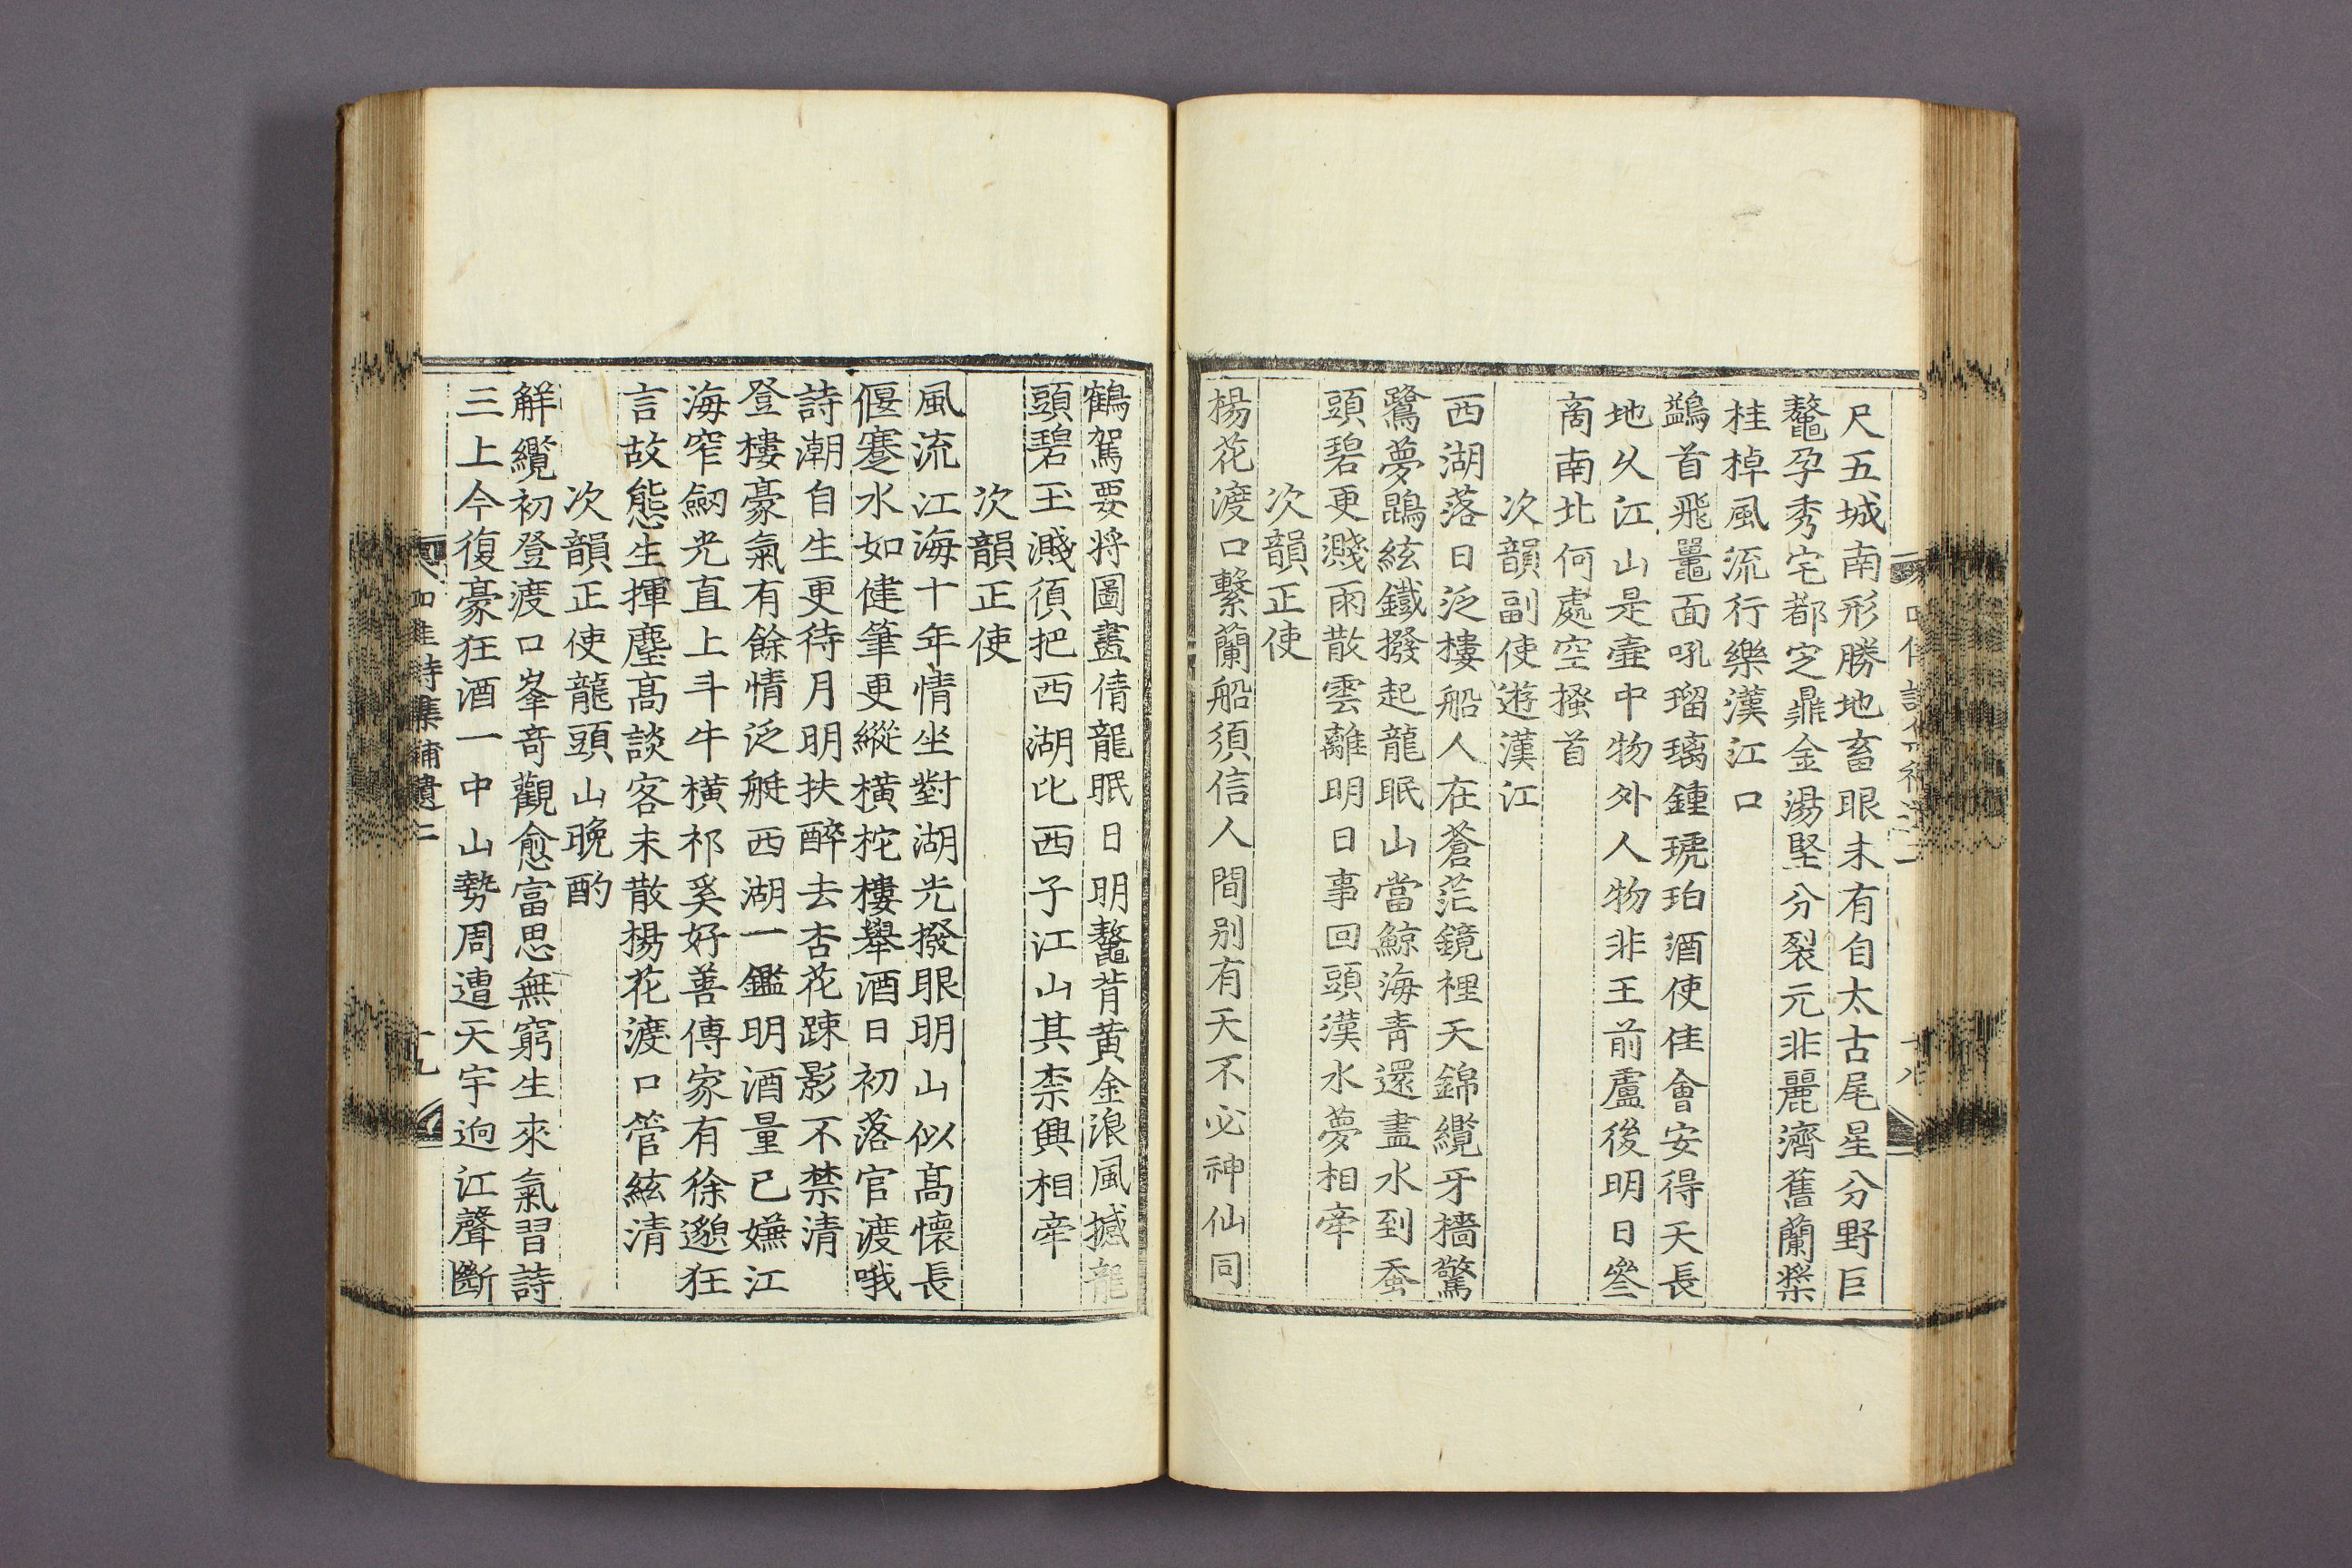 尺五城南形勝地畜眼未有自太古尾星分野巨
鼇孕秀宅都定鼎金湯堅分裂元非麗濟舊蘭槳
桂棹風流行樂漢江口
鷁首飛鼉面吼瑠璃鍾琥珀酒使佳會安得天長
地久江山是壷中物外人物非王前盧後明日參
啇南北何處空搔首
次韻副使遊漢江
西湖落日泛樓船人在蒼茫鏡裡天錦纜牙檣驚
鷺夢鵾絃鐵撥起龍眠山當鯨海青還盡水到蚕
頭碧更濺雨散雲離明日事回頭漢水夢相牽
次韻正使
楊花渡口繫蘭船須信人間别有天不必神仙同
鶴駕要将圖畫倩龍眠日明鼇背黄金浪風撼龍
頭碧玉濺須把西湖比西子江山其柰興相牽
次韻正使
風流江海十年情坐對湖光撥眼明山似髙懷長
偃蹇水如健筆更縱横柁樓舉酒日初落官渡哦
詩潮自生更待月明扶醉去杏花踈影不禁清
登樓豪氣有餘情泛艇西湖一鑑明酒量已嫌江
海窄劒光直上斗牛横祁奚好善傳家有徐邈狂
言故態生揮麈髙談客未散楊花渡口管絃清
次韻正使龍頭山晚酌
觧纜初登渡口峯竒觀愈富思無窮生來氣習詩
三上今復豪狂酒一中山勢周遭天宇逈江聲斷
四佳詩集補遺二
十九